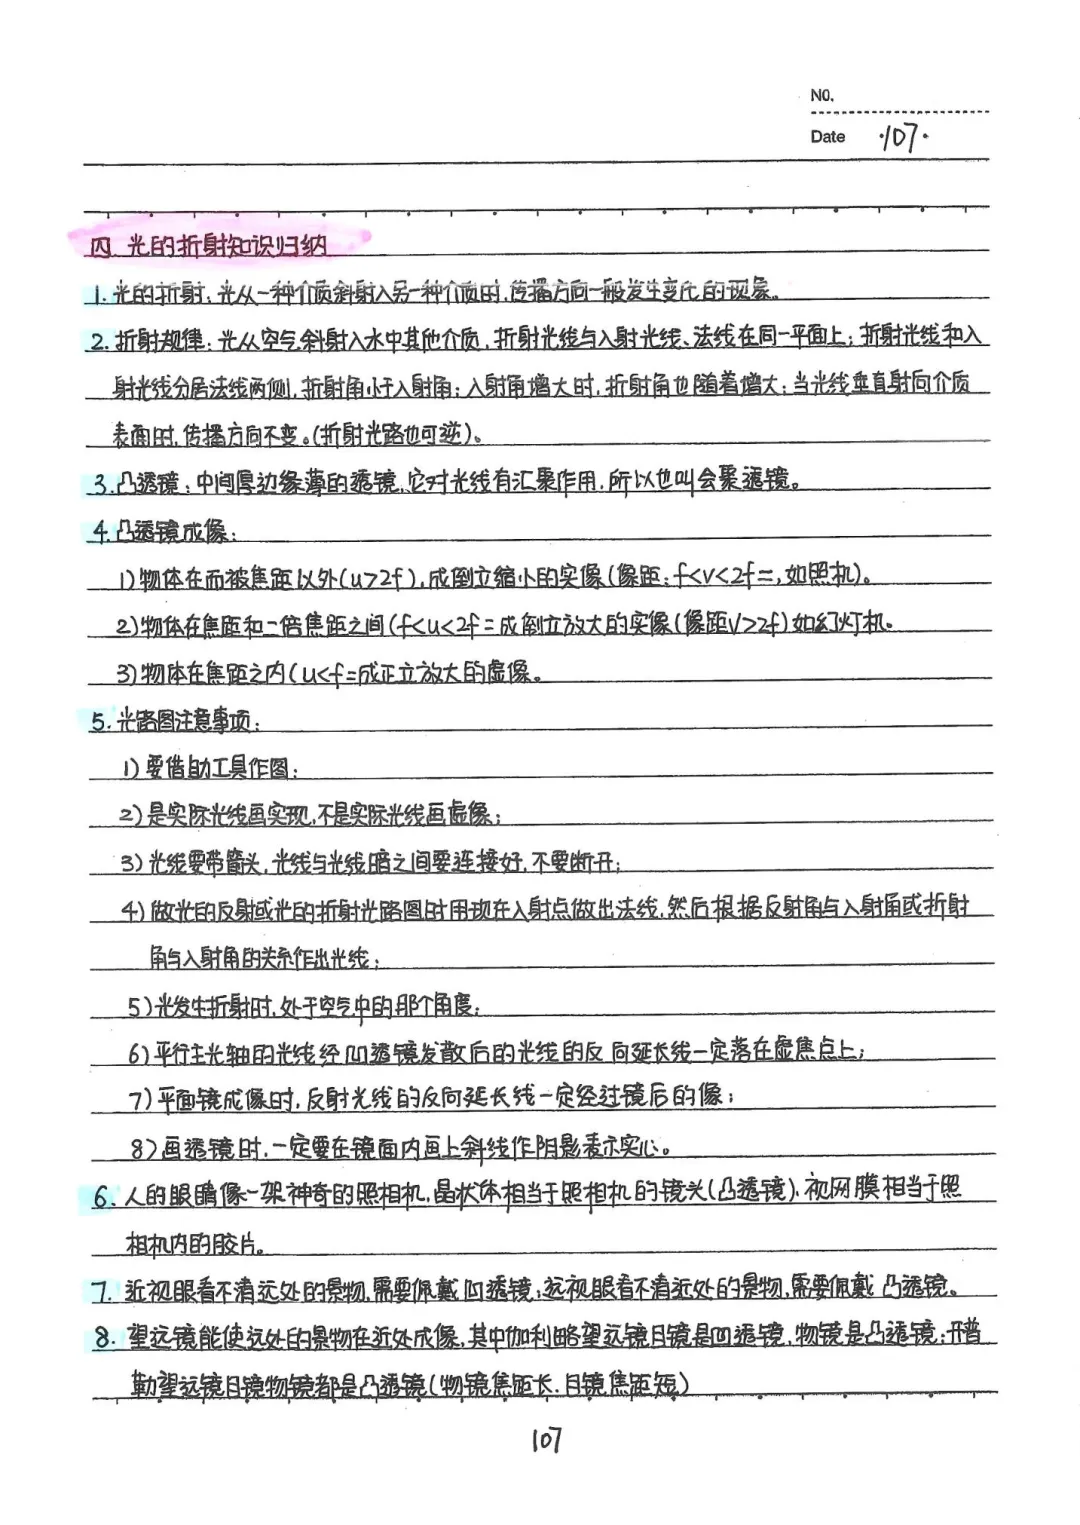 NO.
Date ·107·
四 光的折射知识归纳
1. 光的折射:光从一种介质斜射入另一种介质时,传播方向一般发生变化的现象。
2. 折射规律:光从空气斜射入水中其他介质,折射光线与入射光线、法线在同一平面上;折射光线和入
射光线分居法线两侧,折射角小于入射角;入射角增大时,折射角也随着增大;当光线垂直射向介质
表面时,传播方向不变。(折射光路也可逆)。
3. 凸透镜:中间厚边缘薄的透镜,它对光线有汇聚作用,所以也叫会聚透镜。
4. 凸透镜成像:
1)物体在而被焦距以外(u>2f),成倒立缩小的实像(像距:f<v<2f=,如照机)。
2)物体在焦距和二倍焦距之间(f<u<2f=成倒立放大的实像(像距v>2f)如幻灯机。
3)物体在焦距之内(u<f=成正立放大的虚像。
5. 光路图注意事项:
1)要借助工具作图;
2)是实际光线画实现,不是实际光线画虚像;
3)光线要带箭头,光线与光线暗之间要连接好,不要断开;
4)做光的反射或光的折射光路图时用现在入射点做出法线,然后根据反射角与入射角或折射
角与入射角的关系作出光线;
5)光发生折射时,处于空气中的那个角度;
6)平行主光轴的光线经凹透镜发散后的光线的反向延长线一定落在虚焦点上;
7)平面镜成像时,反射光线的反向延长线一定经过镜后的像;
8)画透镜时,一定要在镜面内画上斜线作阴影表示实心。
6. 人的眼睛像一架神奇的照相机,晶状体相当于照相机的镜头(凸透镜),视网膜相当于照
相机内的胶片。
7. 近视眼看不清远处的景物,需要佩戴凹透镜;远视眼看不清近处的景物,需要佩戴凸透镜。
8. 望远镜能使远处的景物在近处成像,其中伽利略望远镜目镜是凹透镜,物镜是凸透镜;开普
勒望远镜目镜物镜都是凸透镜(物镜焦距长,目镜焦距短)
107